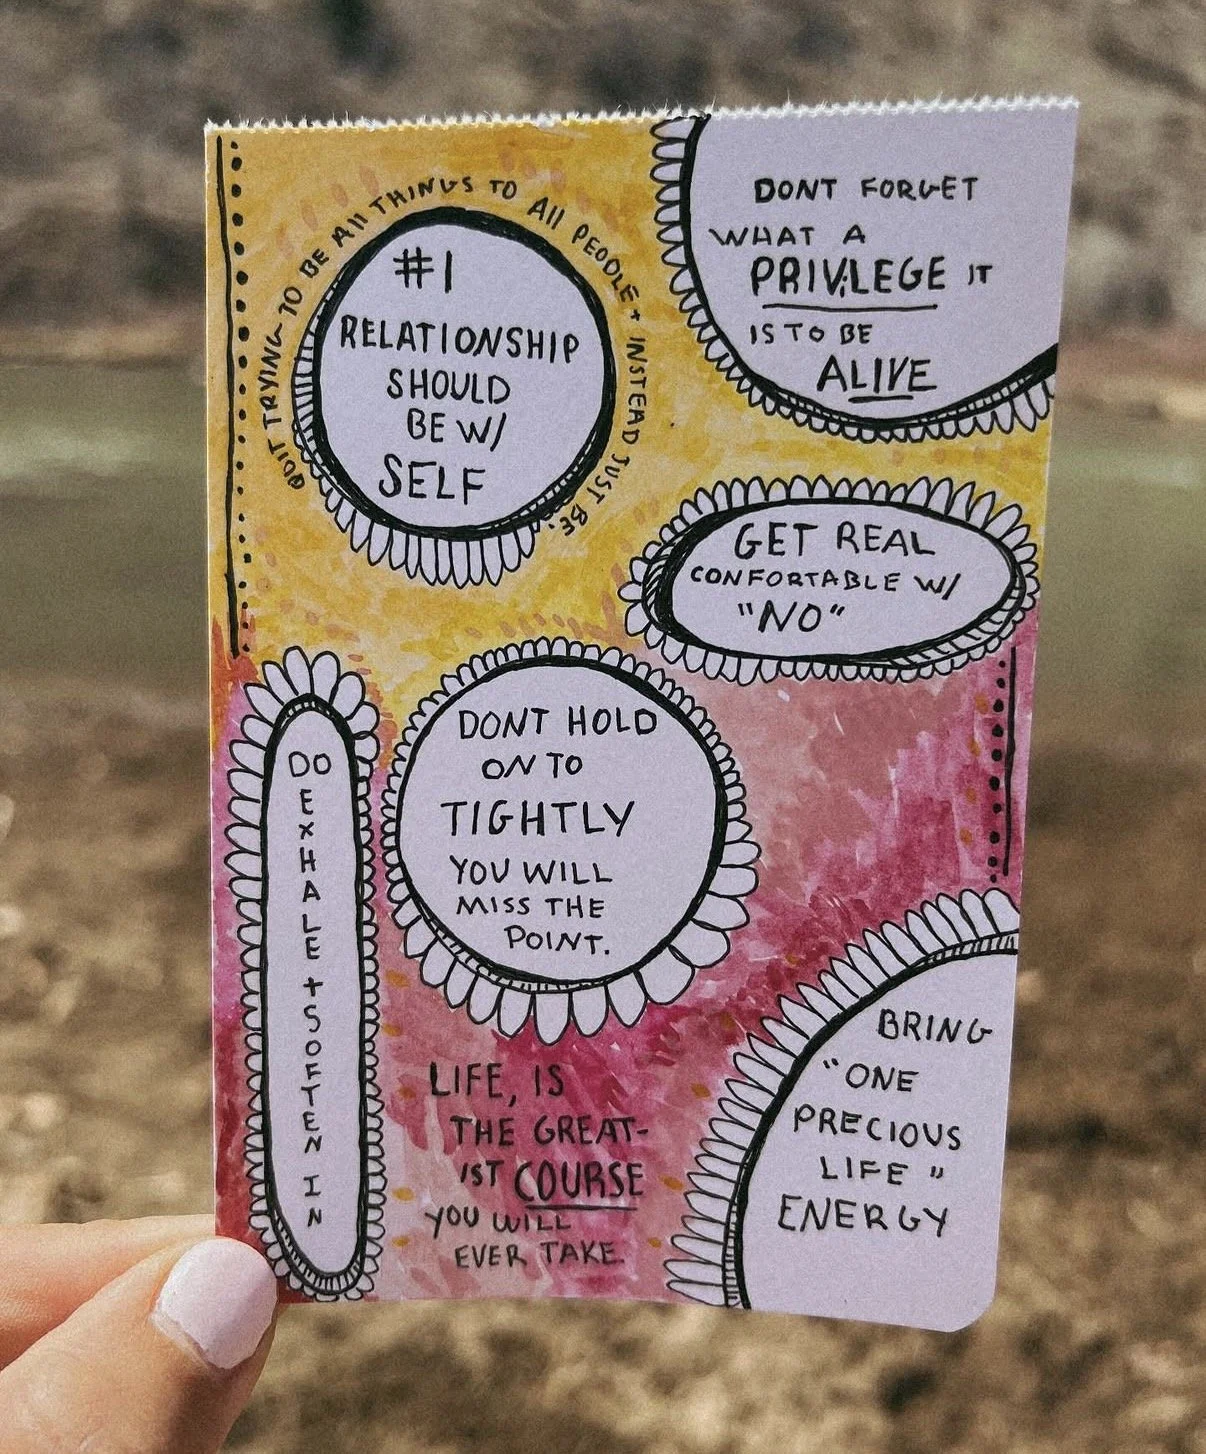 QUIT TRYING TO BE All THINGS TO All PEOPLE + INSTEAD JUST BE.
#1
RELATIONSHIP
SHOULD
BE W/
SELF
DONT FORGET
WHAT A
PRIVILEGE IT
IS TO BE
ALIVE
GET REAL
CONFORTABLE W/
"NO"
DONT HOLD
ON TO
TIGHTLY
YOU WILL
MISS THE
POINT.
DO EXHALE + SOFTEN IN
LIFE, IS
THE GREAT-
IST COURSE
YOU WILL
EVER TAKE.
BRING
"ONE
PRECIOUS
LIFE"
ENERGY